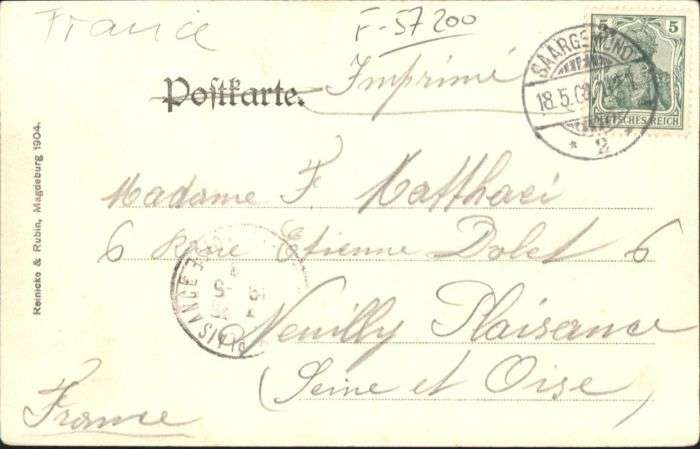 France
F-57200
5 5
DEUTSCHES REICH
SAARGEMÜND
18.5.08
* 2
Postkarte.
Imprimé
Reinicke & Rubin, Magdeburg 1904.
Madame F. Matthaei
6 Rue Etienne Dolet 6
PLAISANCE
Neuilly Plaisance
(Seine et Oise)
France